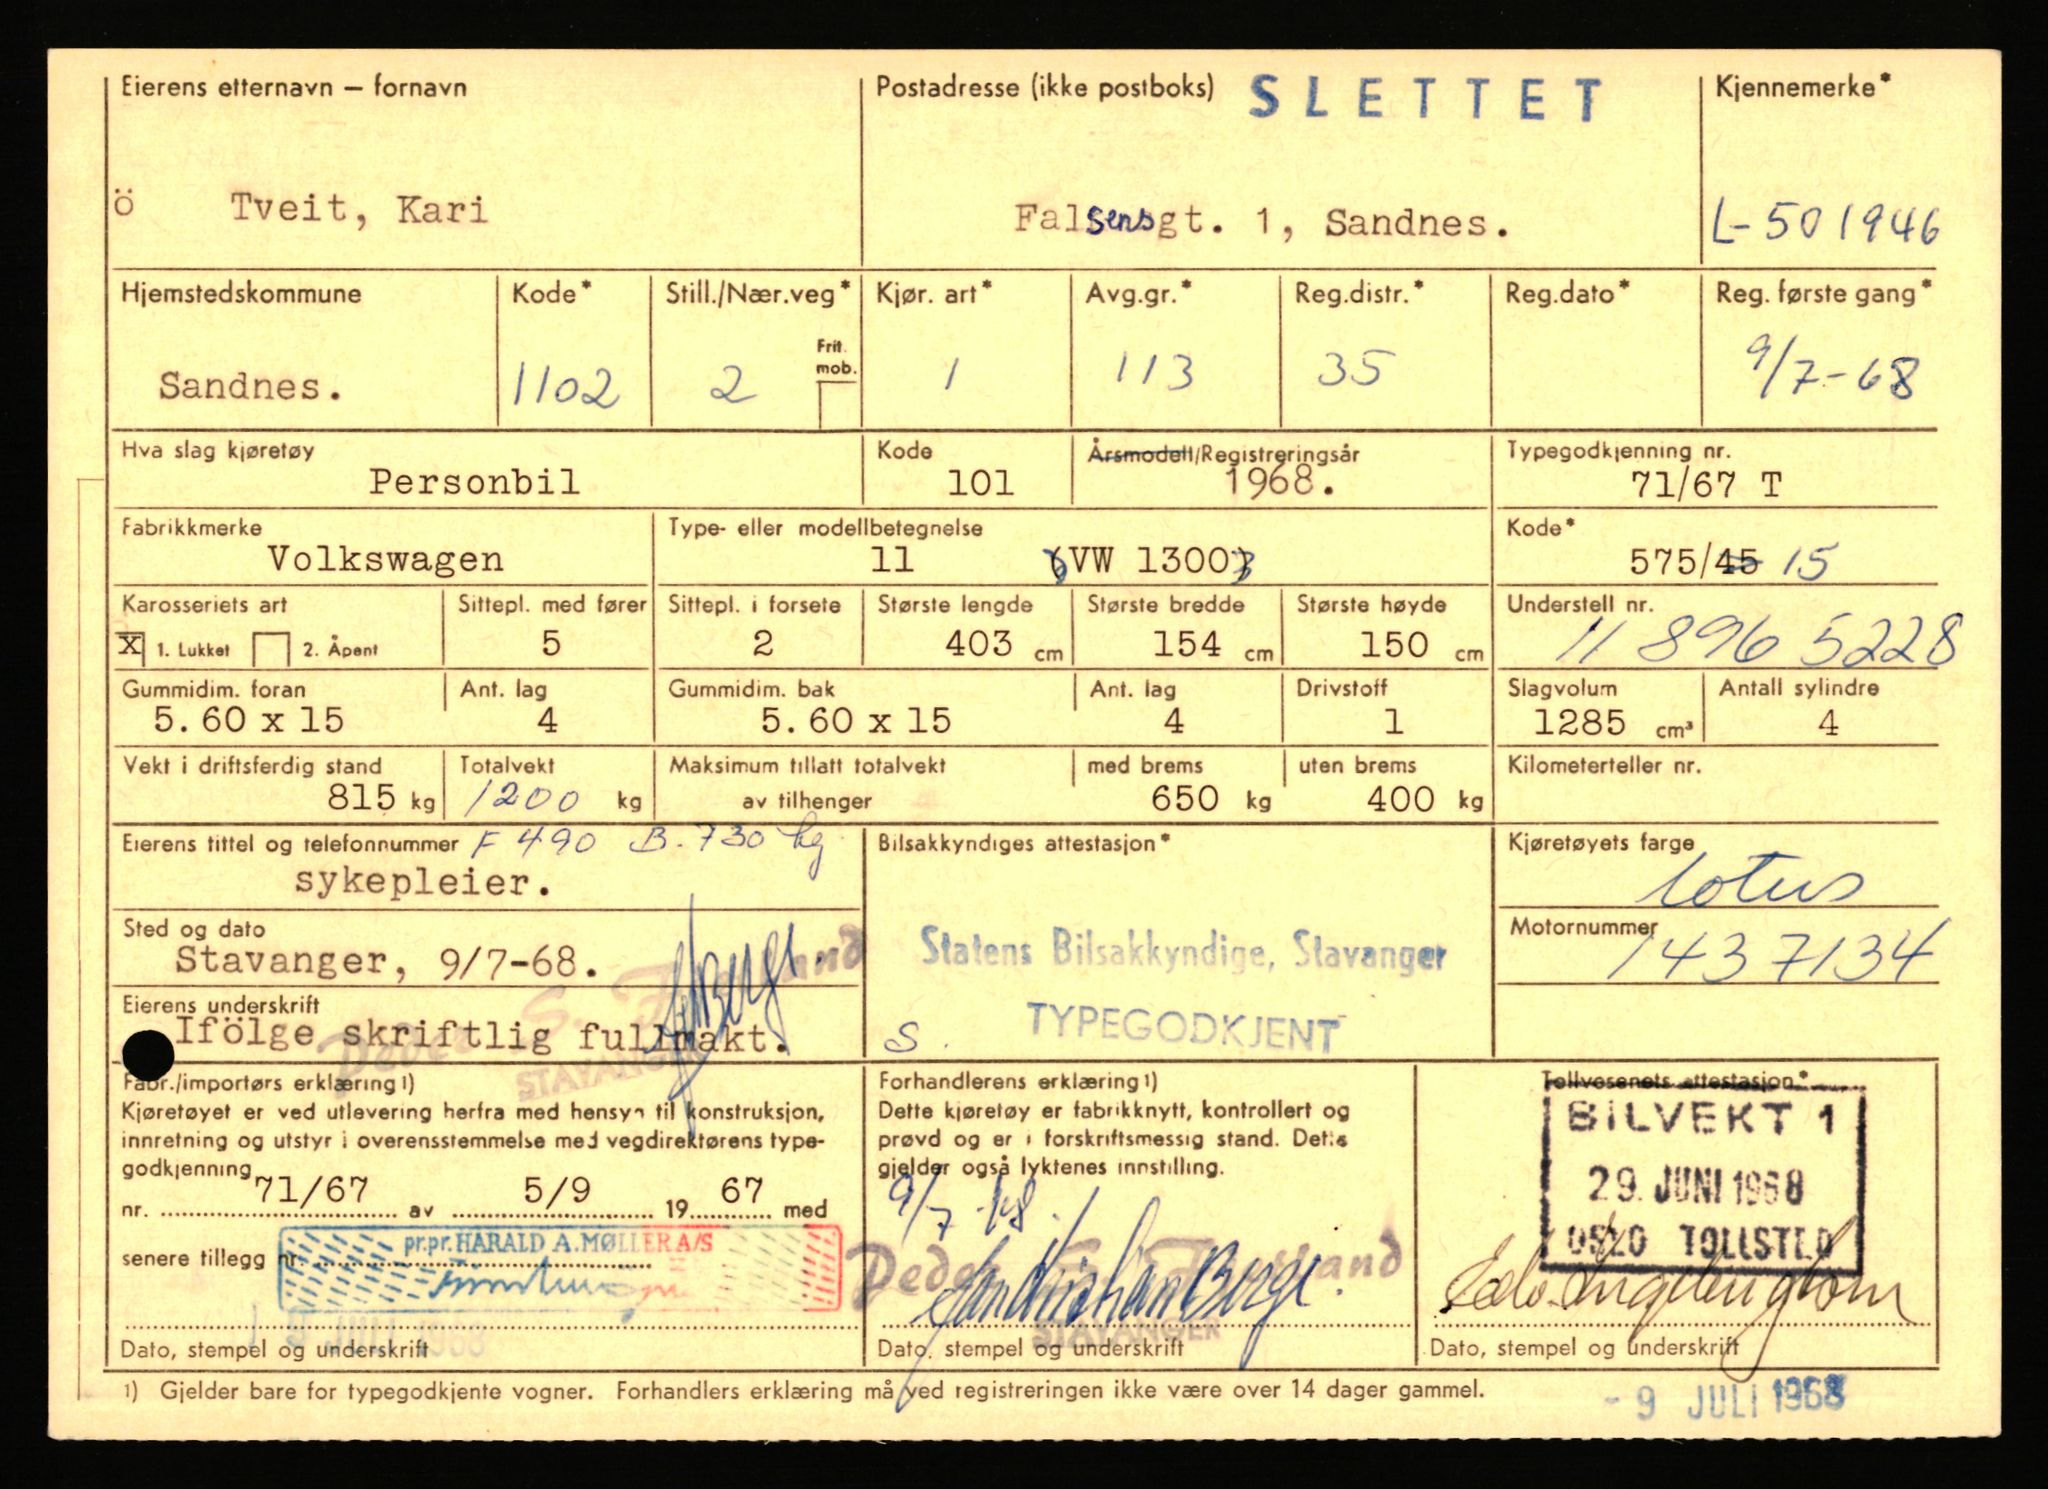 Eierens etternavn – fornavn
Postadresse (ikke postboks)
SLETTET
Kjennemerke*
ö Tveit, Kari
Falsensgt. 1, Sandnes.
L-501946
Hjemstedskommune
Kode*
Still./Nær.veg*
Kjør. art*
Avg.gr.*
Reg.distr.*
Reg.dato*
Reg. første gang*
Frit. mob.
Sandnes.
1102
2
1
113
35
9/7-68
Hva slag kjøretøy
Kode
Årsmodell/Registreringsår
Typegodkjenning nr.
Personbil
101
1968.
71/67 T
Fabrikkmerke
Type- eller modellbetegnelse
Kode*
Volkswagen
11 (VW 1300)
575/45 15
Karosseriets art
Sittepl. med fører
Sittepl. i forsete
Største lengde
Største bredde
Største høyde
Understell nr.
X 1. Lukket 2. Åpent
5
2
403 cm
154 cm
150 cm
11 896 5228
Gummidim. foran
Ant. lag
Gummidim. bak
Ant. lag
Drivstoff
Slagvolum
Antall sylindre
5.60 x 15
4
5.60 x 15
4
1
1285 cm³
4
Vekt i driftsferdig stand
Totalvekt
Maksimum tillatt totalvekt
med brems
uten brems
Kilometerteller nr.
815 kg
1200 kg
av tilhenger
650 kg
400 kg
Eierens tittel og telefonnummer F 490 B. 730 kg
Bilsakkyndiges attestasjon*
Kjøretøyets farge
sykepleier.
lotus
Sted og dato
Motornummer
Stavanger, 9/7-68.
Statens Bilsakkyndige, Stavanger
1437134
Eierens underskrift
TYPEGODKJENT
Ifölge skriftlig fullmakt.
S.
STAVANGER
Fabr./importørs erklæring 1)
Kjøretøyet er ved utlevering herfra med hensyn til konstruksjon,
innretning og utstyr i overensstemmelse med vegdirektørens type-
godkjenning
nr. 71/67 av 5/9 19 67 med
senere tillegg nr.
pr.pr. HARALD A. MØLLER A/S
JULI 1968
Dato, stempel og underskrift
Forhandlerens erklæring 1)
Dette kjøretøy er fabrikknytt, kontrollert og
prøvd og er i forskriftsmessig stand. Dette
gjelder også lyktenes innstilling.
9/7-68.
STAVANGER
Dato, stempel og underskrift
Tollvesenets attestasjon*
BILVEKT 1
29. JUNI 1968
OSLO TOLLSTED
Dato, stempel og underskrift
1) Gjelder bare for typegodkjente vogner. Forhandlers erklæring må ved registreringen ikke være over 14 dager gammel.
- 9 JULI 1968